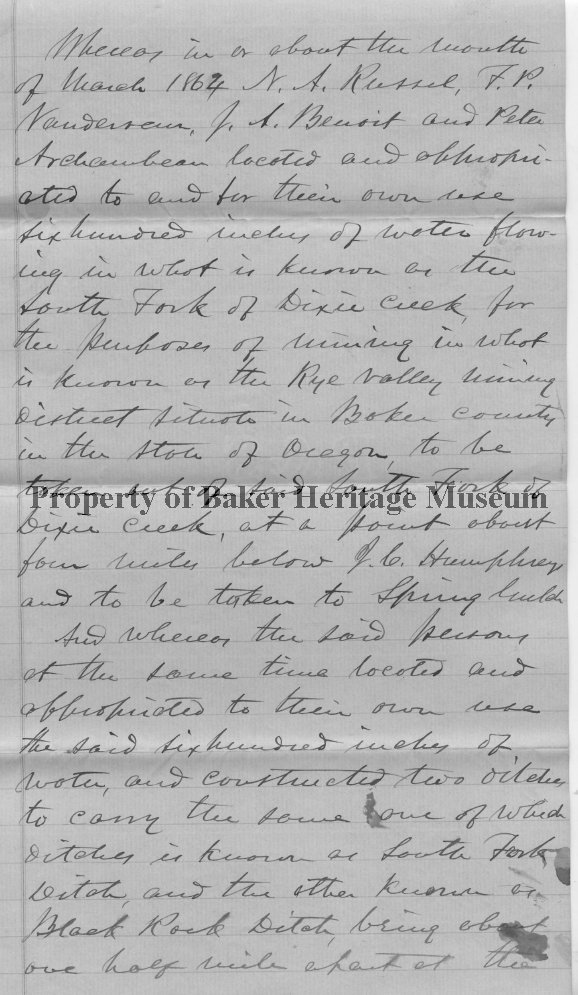 Whereas in or about the month
of March 1864 N. A. Russel, F. P.
Vanderseur, J. A. Benoit and Peter
Archambeau located and appropri-
ated to and for their own use
sixhundred inches of water flow-
ing in what is known as the
South Fork of Dixie Creek, for
the purposes of mining in what
is known as the Rye valley mining
district situate in Baker county
in the state of Oregon, to be
taken out of said South Fork of
Property of Baker Heritage Museum
Dixie Creek, at a point about
four miles below J. C. Humphrey
and to be taken to Spring Gulch
And whereas the said persons
at the same time located and
appropriated to their own use
the said sixhundred inches of
water, and constructed two ditches
to carry the same one of which
ditches is known as South Fork
Ditch, and the other known as
Black Rock Ditch, being about
one half mile apart at the